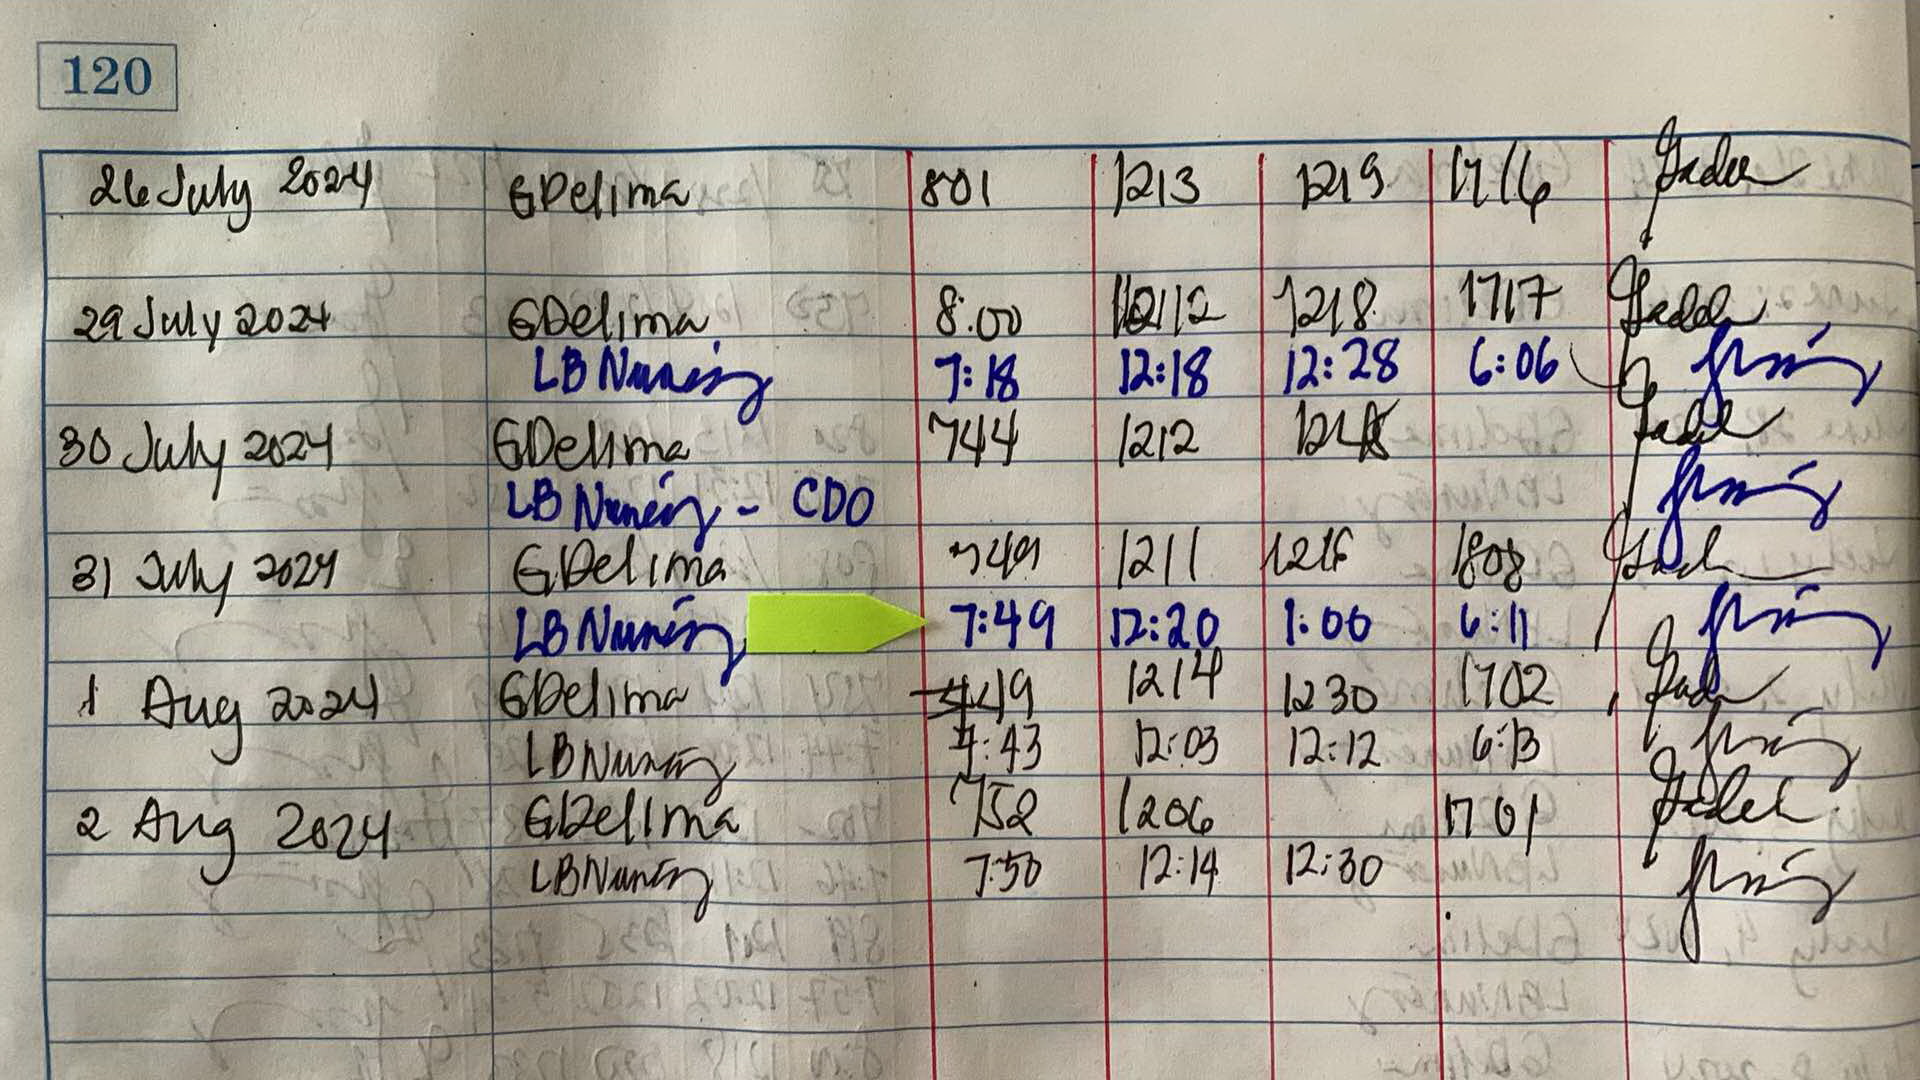 120
26 July 2024 GDelima 801 1213 1219 1716
29 July 2024 GDelima 8:00 1212 1218 1717
LB Nuñez 7:18 12:18 12:28 6:06
30 July 2024 GDelima 744 1212
LB Nuñez - CDO
31 July 2024 GDelima 749 1211 1808
LB Nuñez 7:49 12:20 1:00 6:11
1 Aug 2024 GDelima 1214 1230 1702
LBNuñez 12:03 12:12 6:13
2 Aug 2024 GDelima 752 1206 1701
LBNuñez 7:50 12:14 12:30